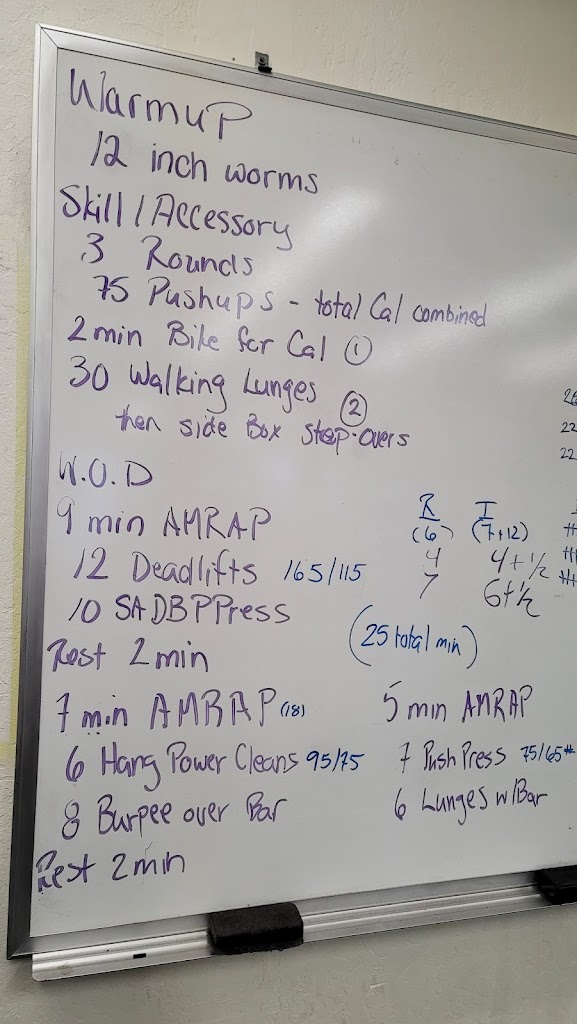 Warmup
12 inch worms
Skill / Accessory
3 Rounds
75 Pushups - total Cal combined
2 min Bike for Cal ①
30 Walking Lunges ②
then side Box Step-overs
W.O.D
9 min AMRAP
12 Deadlifts 165/115
10 SADBPPress
Rest 2 min
R I
(6) (7+12)
4 4+1/2
7 6+1/2
(25 total min)
7 min AMRAP (18)
6 Hang Power Cleans 95/75
8 Burpee over Bar
Rest 2 min
5 min AMRAP
7 Push Press 75/65#
6 Lunges w/Bar
22
22